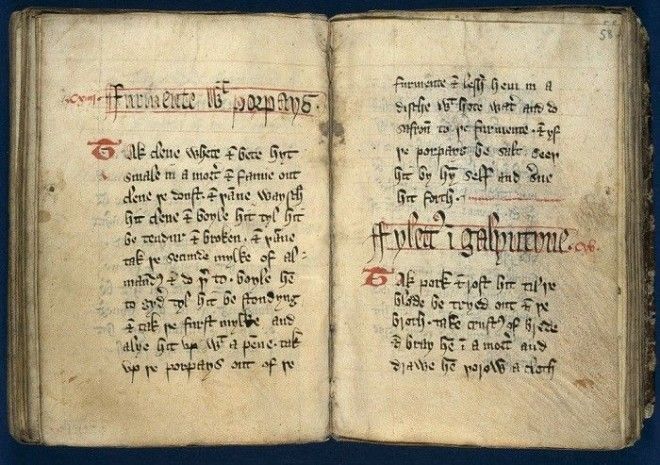 cxiiii. Furmente wt porpays.
Tak clene whete & bete hyt
smale in a mort' & fanne out
clene þe doust. & þane waysch
hit clene & boyle hit tyl hit
be tendur & broken. & þane
tak þe secunde mylke of al-
mand' & do þ' to. boyle hē
to gyd' tyl hit be stondyng
& tak þe furst mylke and
alye hit vp wt a pene. tak
vp þe porpays out of þe
58
furmente & lesh hem in a
dische wt hote wat' and do
safron to þe furmente. & yf
þe porpays be salt. seeþ
hit by hym self and s'ue
hit forth.
Fylett' ī galyntyne. cxv.
Tak pork & rost hit til þe
blode be tryed out & þe
broth. take crust' of brede
& bray hē ī a mort' and
drawe hē þorow a cloth